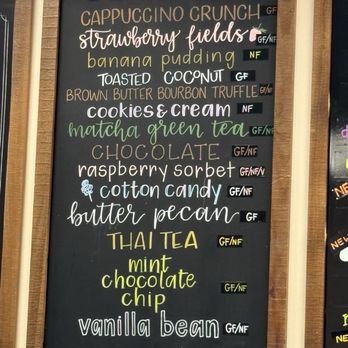 CAPPUCCINO CRUNCH GF
strawberry fields GF/NF
banana pudding NF
TOASTED COCONUT GF
BROWN BUTTER BOURBON TRUFFLE GF/NF
cookies & cream NF
matcha green tea GF/NF
CHOCOLATE GF/NF
raspberry sorbet GF/NF/V
cotton candy GF/NF
butter pecan GF
THAI TEA GF/NF
mint
chocolate
chip GF/NF
vanilla bean GF/NF